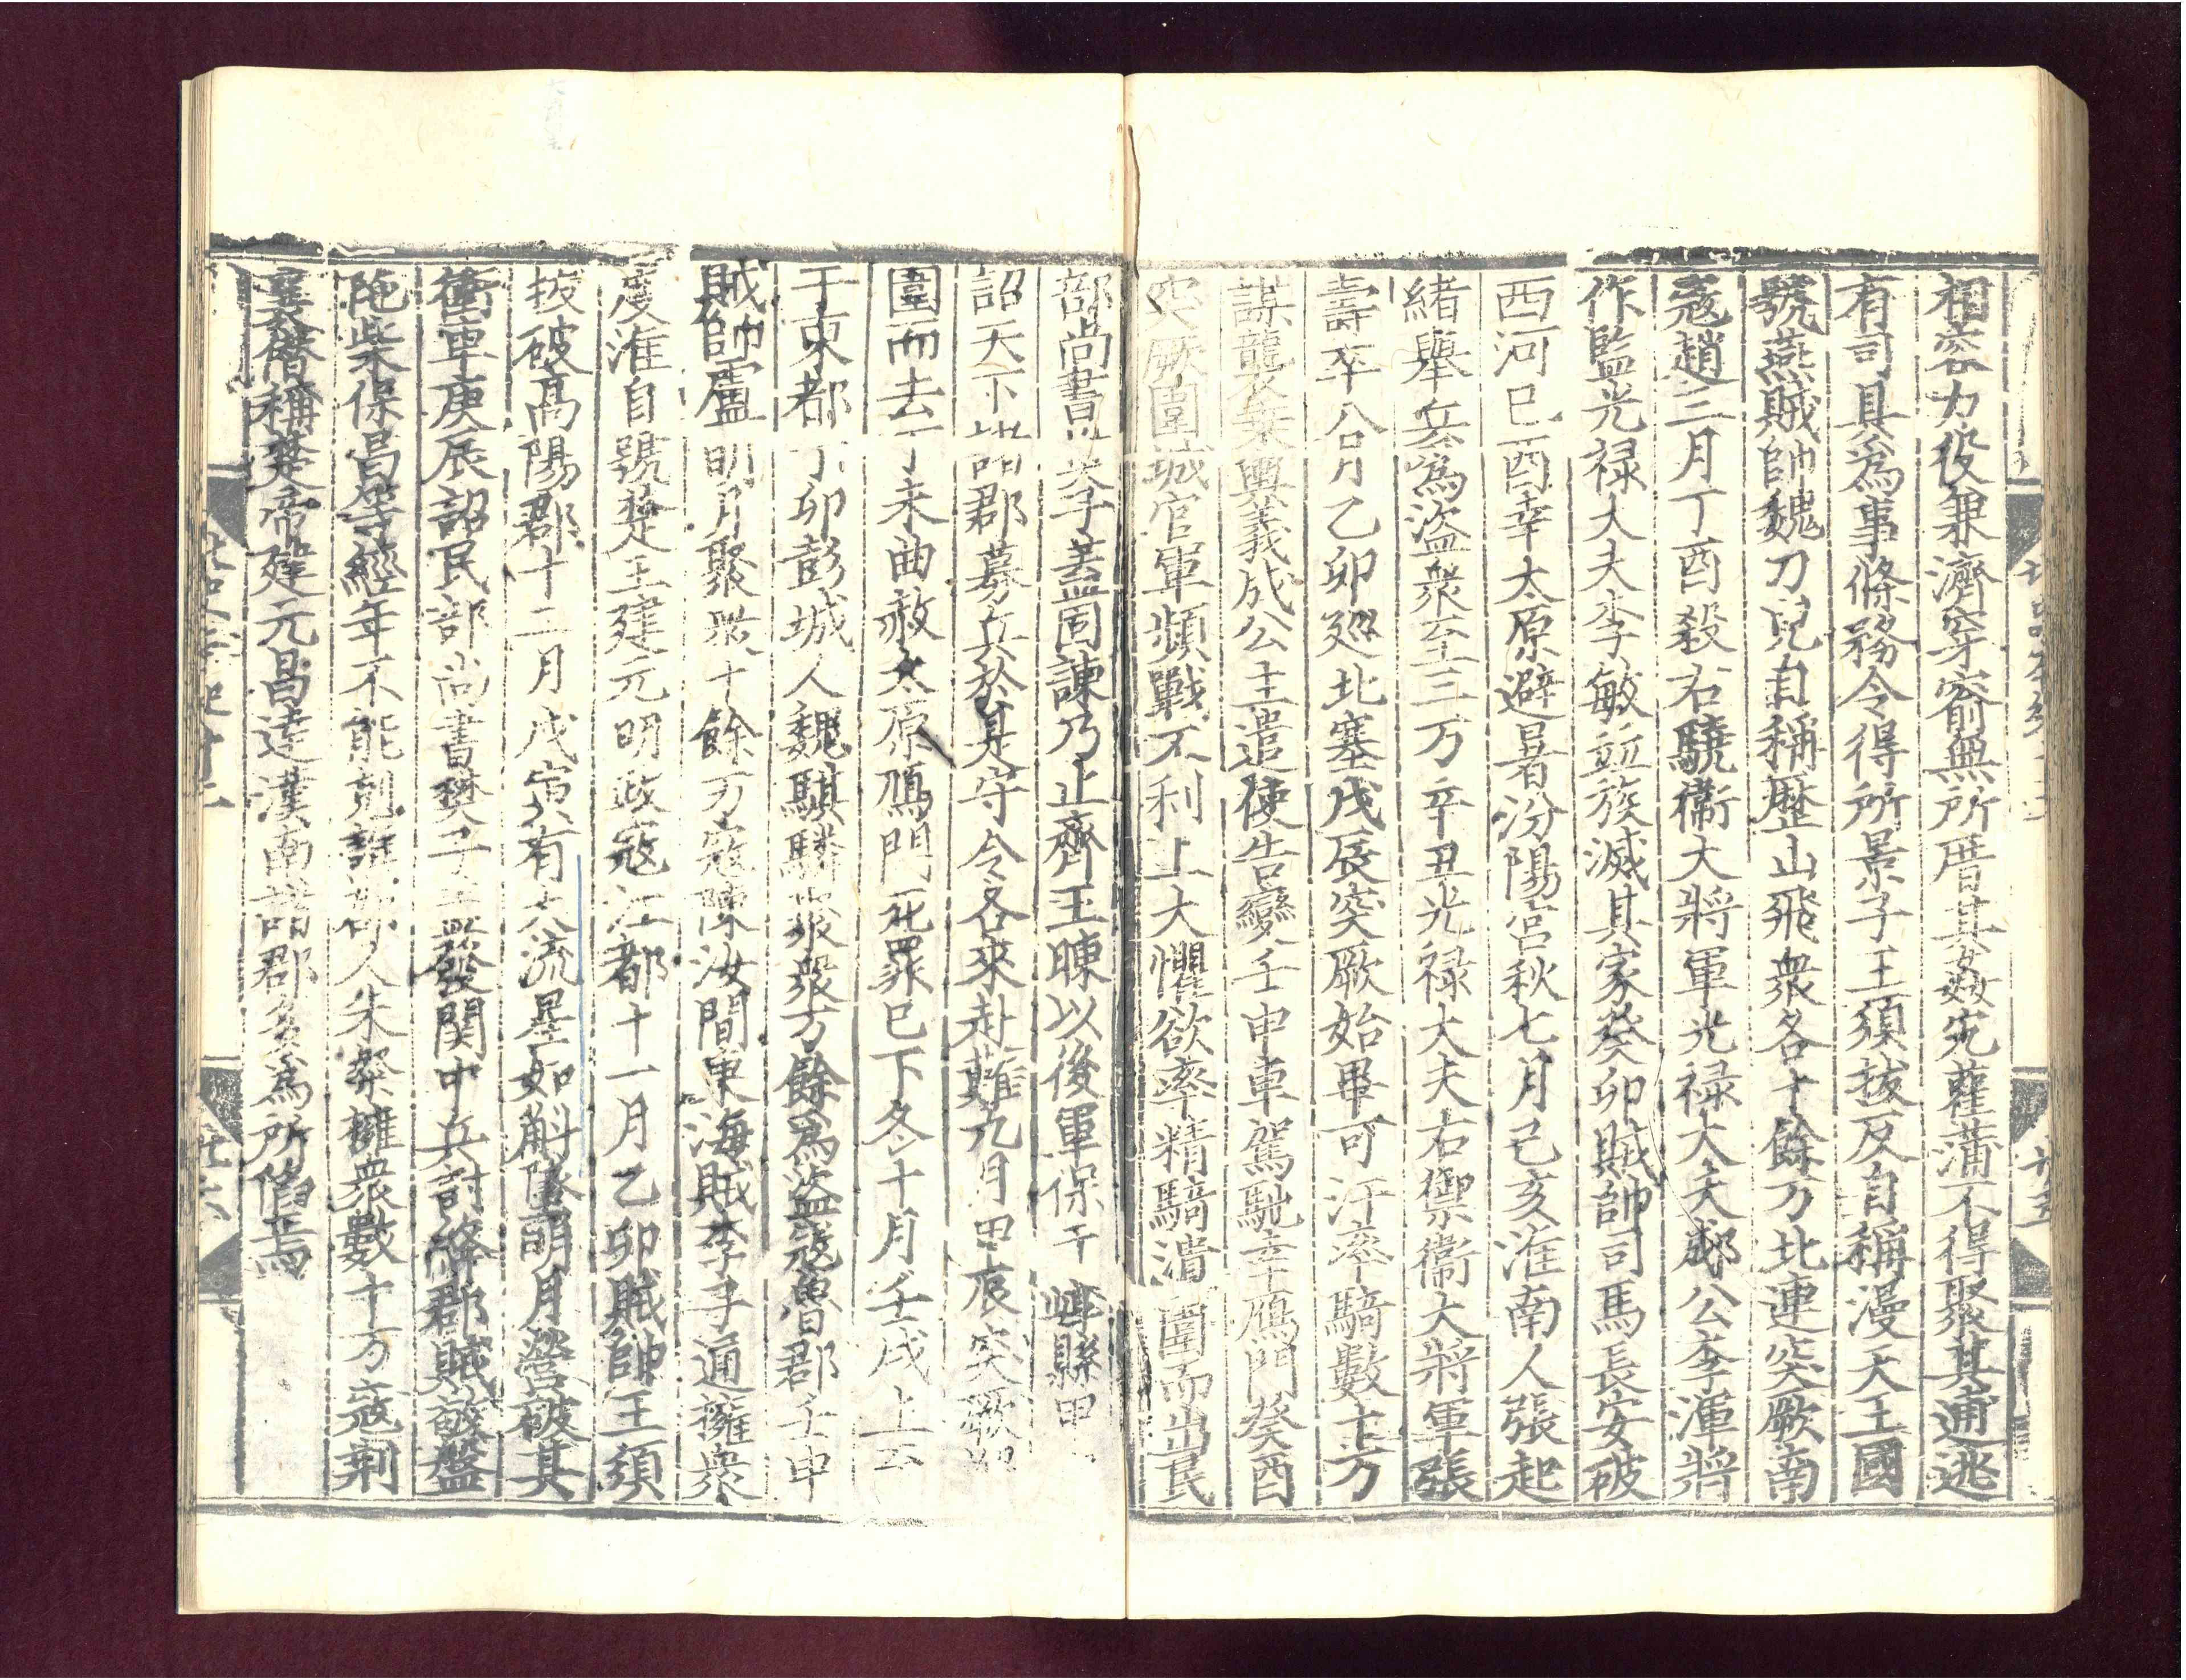 相容力役兼濟穿窬無所厝其姦宄雚蒲不得聚其逋逃
有司具爲事條務令得所景子王須拔反自稱漫天王國
號燕賊帥魏刀兒自稱歷山飛衆各十餘万北連突厥南
寇趙三月丁酉殺右驍衞大將軍光禄大夫郕公李渾將
作監光禄大夫李敏並族滅其家癸卯賊帥司馬長安破
西河巳酉幸太原避暑汾陽宮秋七月己亥淮南人張起
緒舉兵爲盗衆至三万辛丑光禄大夫右禦衞大將軍張
壽卒八月乙卯廵北塞戊辰突厥始畢可汗率騎數十万
謀襲乗輿義成公主遣使告變壬申車駕馳幸鴈門癸酉
突厥圍城官軍頻戰不利上大懼欲率精騎潰圍而出民
部尚書子蓋固諫乃止齊王暕以後軍保于崞縣甲
詔天下諸郡募兵於是守令各來赴難九月甲辰突厥
圍而去丁未曲赦太原鴈門死罪巳下冬十月壬戌上
于東都丁卯彭城人魏騏驎聚衆万餘爲盗寇魯郡壬申
賊帥盧明月聚衆十餘万寇陳汝間東海賊李子通擁衆
度淮自號楚王建元明政寇江都十一月乙卯賊帥王須
拔破高陽郡十二月戊寅有大流星如斛墜明月營破其
衝車庚辰詔民部尚書樊子蓋發関中兵討絳郡賊敬盤
陁柴保昌等經年不能剋譙郡人朱粲擁衆數十万寇荆
襄僭稱楚帝建元昌達漢南諸郡多爲所䧟焉